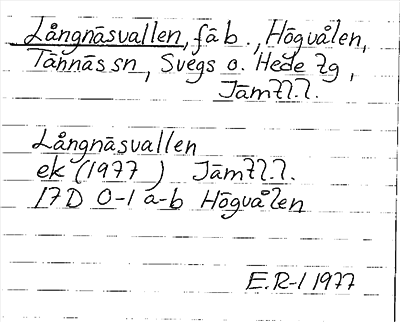 Långnäsvallen, fäb., Högvålen,
Tännäs sn, Svegs o. Hede tg,
Jämtl.l.
Långnäsvallen
ek (1977 ) Jämtl.l.
17D 0-1 a-b Högvålen
E.R-l 1977